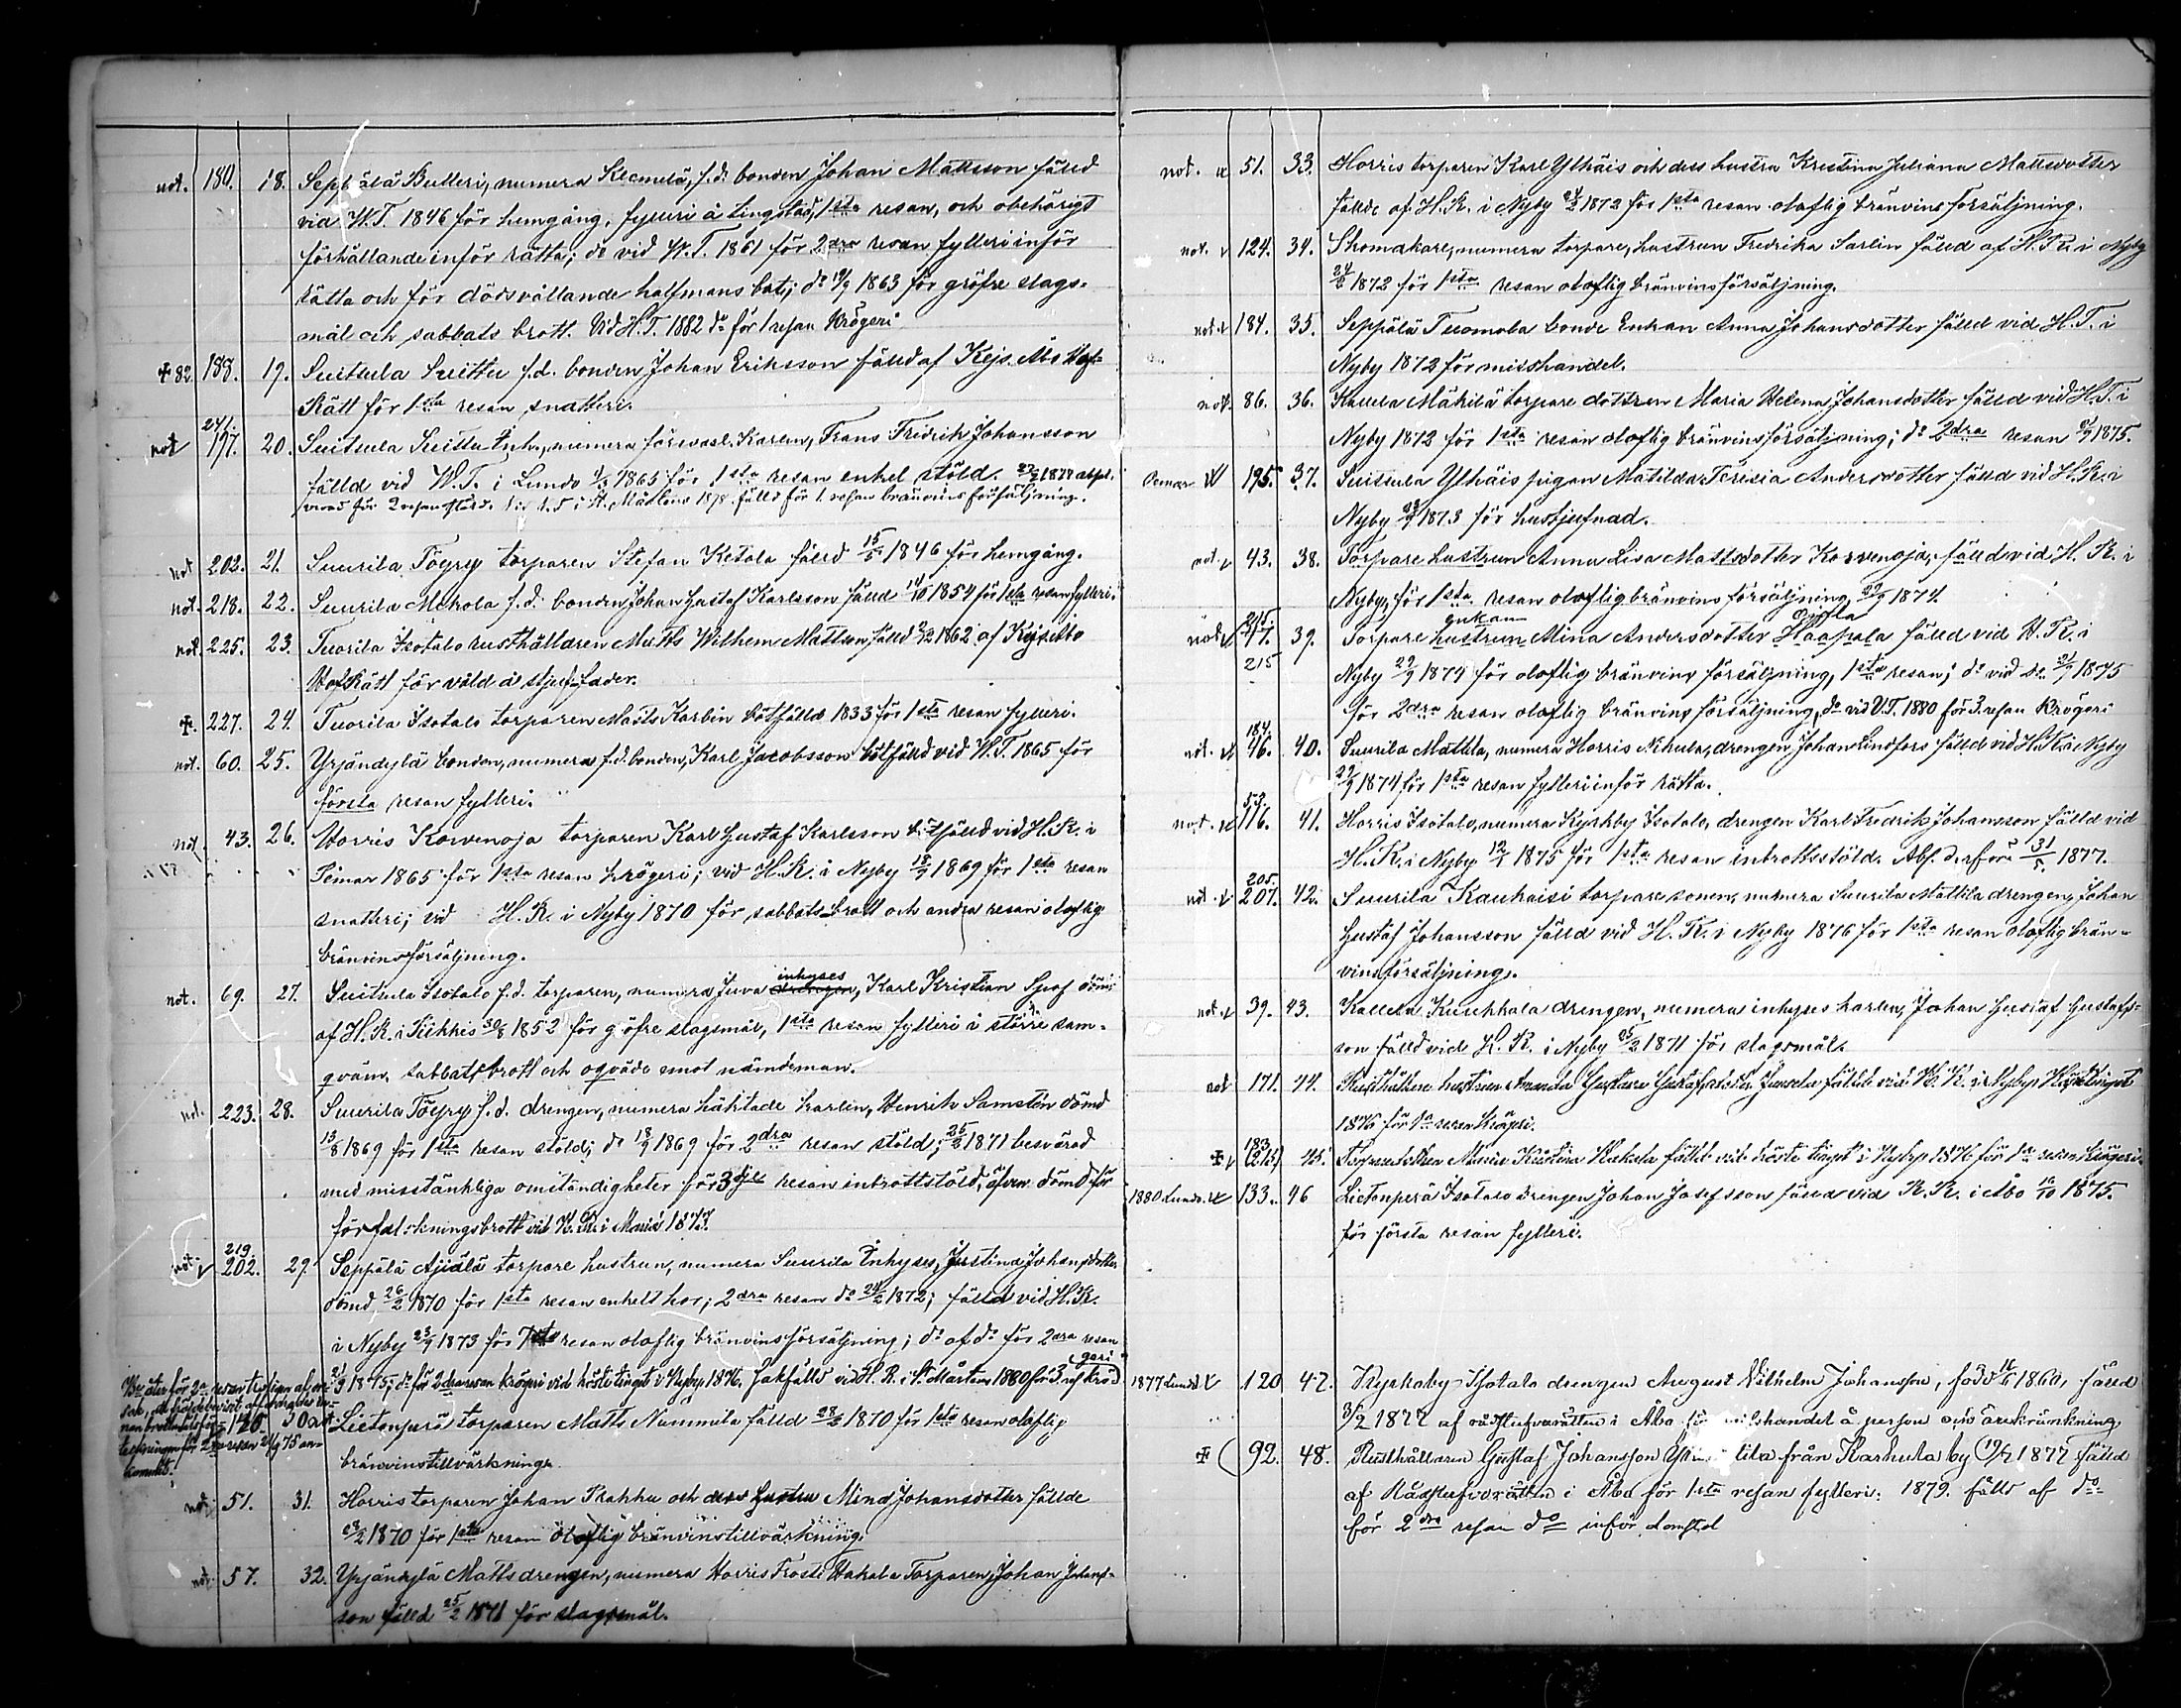 not. 180. 18. Seppälä Bulleri, numera Kecmelä, f.d. bonden Johan Mattsson fälld
vid W.T. 1846 för hemgång, fylleri å tingstad, 1sta resan, och obehörigt
förhållande inför rätta; do vid W.T. 1861 för 2dra resan fylleri inför
rätta och för dödsvållande halfmans bot; do 1863 för gröfre slags-
mål och sabbats brott. Vid H.T. 1882 do för 1 resan Krögeri
+82. 188. 19. Suitsula Suittu f.d. bonden Johan Eriksson fälld af Kejs. Åbo Hof-
Rätt för 1sta resan snatteri.
241.
not 197. 20. Suitsula Suittu Inh., numera Karlen, Frans Fredrik Johansson
fälld vid W.T. i Lundo 1865 för 1sta resan enkel stöld. 1877
för 2 resan stöld. i St. Mårtens 1878 fälld för 1. resan bränvins försäljning.
not 202. 21. Suurila Töyry torparen Stefan Ketola fälld 15/5 1846 för hemgång.
not. 218. 22. Suurila Mekola f.d. bonden Johan Gustaf Karlsson fälld 14/10 1854 för 1sta resan fylleri.
not. 225. 23. Tuorila Isotalo rusthållaren Matts Wilhelm Mattsson fälld 1862 af Kejs. Åbo
HofRätt för våld å stjuf-fader.
+. 227. 24. Tuorila Isotalo torparen Matts Karlin botfälld 1833 för 1sta resan fylleri.
not. 60. 25. Yrjänäylä bonden, numera f.d. bonden, Karl Jacobsson botfälld vid W.T. 1865 för
första resan fylleri.
not. 43. 26. Horris Korvenoja torparen Karl Gustaf Karlsson fälld vid H.R. i
Pemar 1865 för 1sta resan krögeri; vid H.R. i Nyby 18/9 1869 för 1sta resan
snatteri; vid H.R. i Nyby 1870 för sabbats brott och andra resan olaflig
bränvinsförsäljning.
not. 69. 27. Suitsula Isotalo f.d. torparen, numera Juva inhyses, Karl Kristian dömd
af H.R. i Piikkis 30/8 1852 för gröfre slagsmål, 1sta resan fylleri i större sam-
qväm, sabbatsbrott och oqväde emot nämdeman.
not. 223. 28. Suurila Töyry f.d. drengen, numera häktade karlen, Henrik Samstén dömd
13/8 1869 för 1sta resan stöld; do 18/9 1869 för 2dra resan stöld; 25/2 1871 besvärad
med misstänkliga omständigheter för 3dje resan inbrottstöld; äfven dömd för
förfalskningsbrott vid H.R. i Marie 1877.
219.
not. v 202. 29. Seppälä Ajiälä torpare hustrun, numera Suurila Inhyses, Justina Johansdotter
dömd 26/2 1870 för 1sta resan enkelt hor; 2dra resan do 24/2 1872; fälld vid H.R.
i Nyby 23/9 1873 för 1sta resan olaflig bränvinsförsäljning; do af do för 2dra resan
21/9 1875; do för 2dra resan krögeri vid hösttinget i Nyby 1876. Sakfälld vid H.R. i St. Mårtens 1880 för 3. res krö-
geri
30. Lietonperä torparen Matts Nummila fälld 28/2 1870 för 1sta resan olaflig
bränvinstillvärkning.
not. 51. 31. Horris torparen Johan Krahhu och dess hustru Mina Johansdotter fällde
28/2 1870 för 1sta resan olaflig bränvinstillvärkning.
not. 57. 32. Yrjänäylä Matts drengen, numera Horris Trosti Hakala Torparen, Johan Johans-
son fälld 25/2 1871 för slagsmål.
not. v 51. 33. Horris torparen Karl Ylhäis och dess hustru Kristina Juliana Mattsdotter
fällde af H.R. i Nyby 24/2 1872 för 1sta resan olaflig bränvins försäljning.
not. v 124. 34. Skomakare, numera torpare, hustrun Fredrika Sarlin fälld af H.R. i Nyby
24/2 1872 för 1sta resan olaflig bränvinsförsäljning.
not. v 184. 35. Seppälä Tuomola bonde Enkan Anna Johansdotter fälld vid H.T. i
Nyby 1872 för misshandel.
not. 86. 36. Kallela Mäkilä torpare dottren Maria Helena Johansdotter fälld vid H.T. i
Nyby 1872 för 1sta resan olaflig bränvinsförsäljning; do 2dra resan 1875.
Pemar v 195. 37. Suitsula Ylhäis pigan Matilda Teresia Andersdotter fälld vid H.R. i
Nyby 23/9 1873 för hustjufnad.
not v 43. 38. Torpare hustrun Anna Lisa Mattsdotter Korvenoja, fälld vid H.R. i
Nyby, för 1sta resan olaflig bränvins försäljning 22/9 1874.
215. enkan
not v 47. 39. Torpare hustrun Mina Andersdotter Haapala fälld vid H.R. i
215 Nyby 22/9 1874 för olaflig bränvins försäljning, 1sta resan; do vid do 21/9 1875
för 2dra resan olaflig bränvins försäljning, do vid V.T. 1880 för 3. resan Krögeri
184.
not. v 46. 40. Suurila Mattila, numera Horris Nihula, drengen Johan Lindfors fälld vid H.R. i Nyby
22/9 1874 för 1sta resan fylleri inför rätta.
53.
not. v 116. 41. Horris Isotalo, numera Kyrkby Isotalo, drengen Karl Fredrik Johansson fälld vid
H.R. i Nyby 1875 för 1sta resan inbrottsstöld. Abs. derför 31/5 1877.
205.
not. v 207. 42. Suurila Kauhaisi torpare sonen, numera Suurila Mattila drengen, Johan
Gustaf Johansson fälld vid H.R. i Nyby 1876 för 1sta resan olaflig brän-
vinsförsäljning.
not. v 39. 43. Kallela Kuuhkala drengen, numera inhyses karlen, Johan Gustaf Gustafs-
son fälld vid H.R. i Nyby 25/2 1871 för slagsmål.
not 171. 44. Rusthållare hustrun Amanda Gustava Gustafsdotter Junnola fälld vid H.R. i Nyby Hösttinget
1876 för 1a resan Krögeri.
183
+ v (213) 45. Torparedottren Maria Kristina Hakala fälld vid höste tinget i Nyby 1876 för 1a resan Krögeri.
1880 Lundo. v 133. 46 Lietonperä Isotalo drengen Johan Josefsson fälld vid R.R. i Åbo 1875.
för första resan fylleri.
1877 Lundo v 120 47. Kyrkoby Isotalo drengen August Wilhelm Johansson, född 1860, fälld
3/2 1877 af rådstufvurätten i Åbo misshandel å person och ärekränkning
+ (92. 48. Rusthållaren Gustaf Johansson från Karhula by 1877 fälld
af Rådstufvurätten i Åbo för 1sta resan fylleri: 1879. fälld af do
för 2dra resan do inför domstol